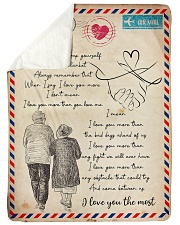 AIR MAIL
yourself
blanket
Always remember that
When I say I love you more
I don't mean
I love you more than you love me
I mean
I love you more than
the bad days ahead of us
I love you more than
any fight we will ever have
I love you more than
any obstacle that could try
And come between us
I love you the most